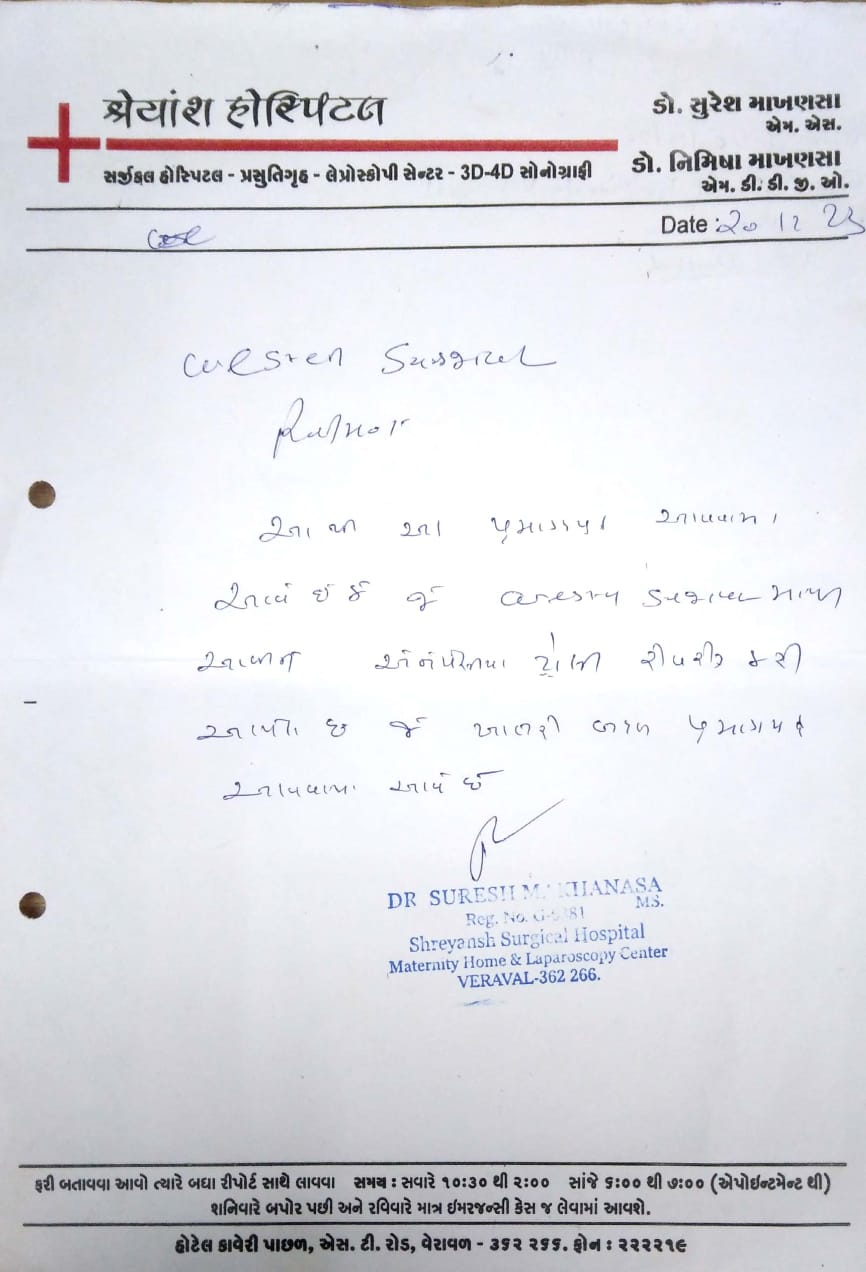 શ્રેયાંશ હોસ્પિટલ
સર્જીકલ હોસ્પિટલ - પ્રસુતિગૃહ - લેપ્રોસ્કોપી સેન્ટર - 3D-4D સોનોગ્રાફી
ડો. સુરેશ માખણસા
એમ. એસ.
ડો. નિમિષા માખણસા
એમ. ડી. ડી. જી. ઓ.
Date : ૨૦ ૧૨ 23
Surgical
આથી આ પ્રમાણપત્ર આપવામાં
આવે છે કે
રીપેરીંગ કરી
આપેલ છે જે ખાતરી બદલ પ્રમાણપત્ર
આપવામાં આવે છે
DR SURESH MAKHANASA
MS.
Reg. No. G-
Shreyansh Surgical Hospital
Maternity Home & Laparoscopy Center
VERAVAL-362 266.
ફરી બતાવવા આવો ત્યારે બધા રીપોર્ટ સાથે લાવવા સમય : સવારે ૧૦:૩૦ થી ૨:૦૦ સાંજે ૬:૦૦ થી ૭:૦૦ (એપોઇન્ટમેન્ટ થી)
શનિવારે બપોર પછી અને રવિવારે માત્ર ઇમરજન્સી કેસ જ લેવામાં આવશે.
હોટેલ કાવેરી પાછળ, એસ. ટી. રોડ, વેરાવળ - ૩૬૨ ૨૬૬. ફોન : ૨૨૨૨૧૯